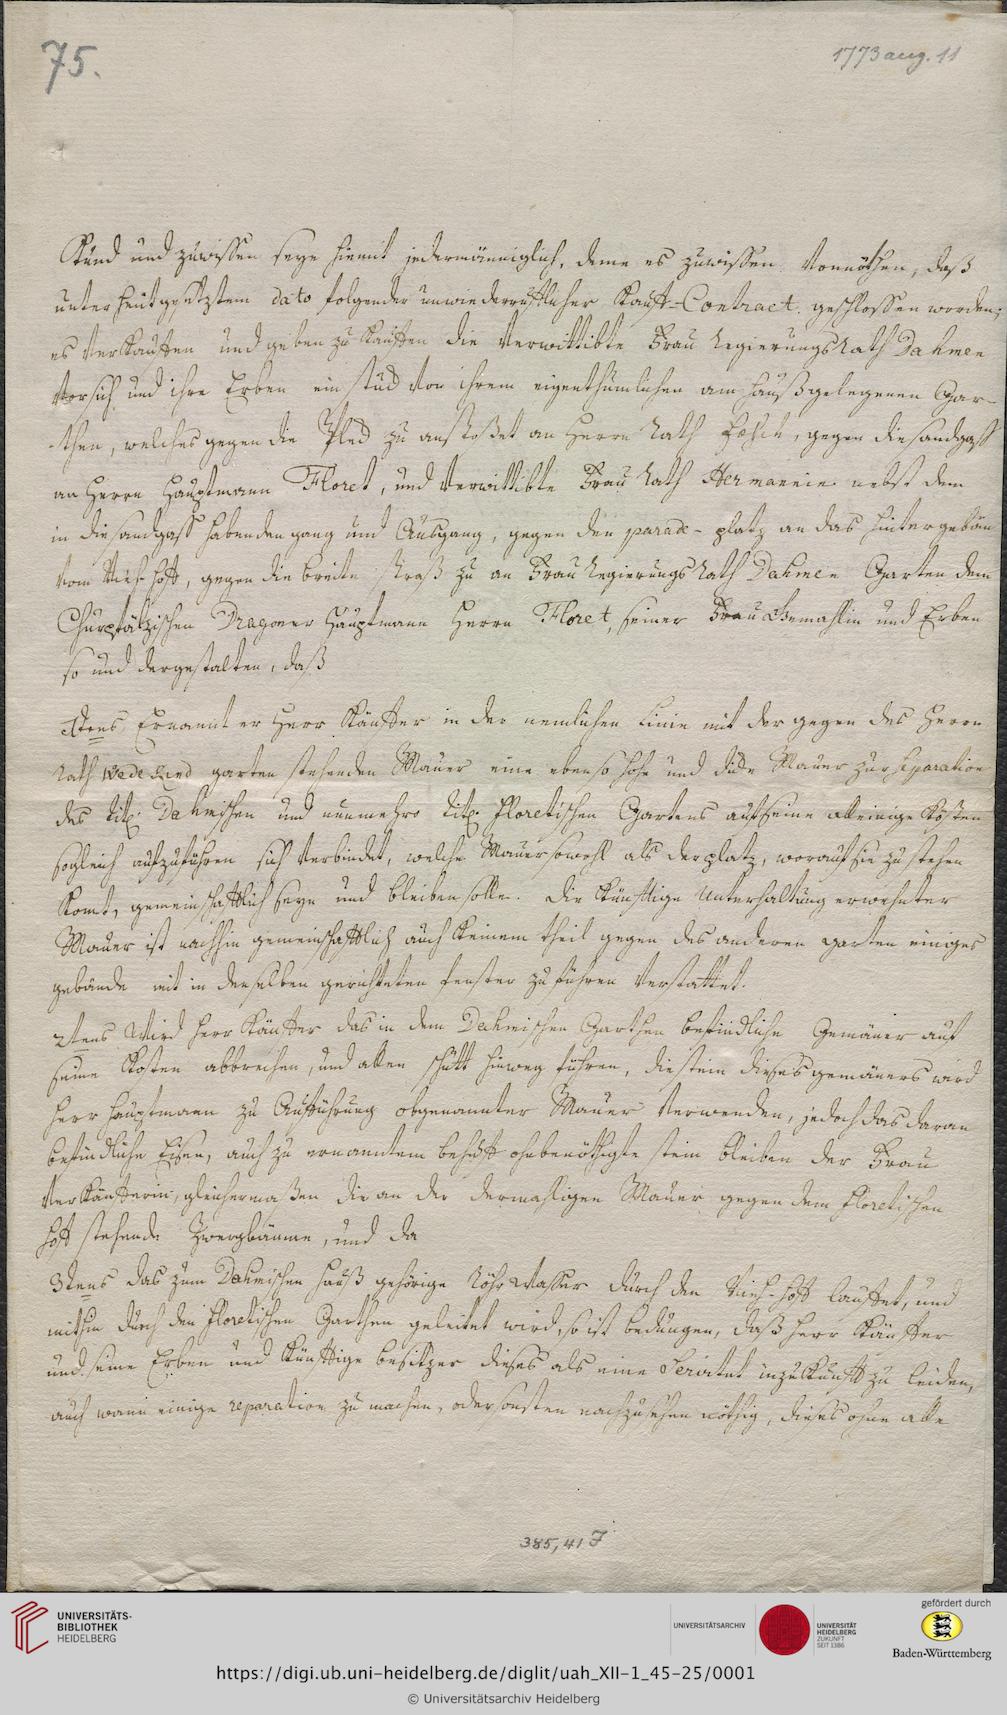 75.
1773 aug. 11
Kund und zuwissen seye hiemit jedermänniglich, deme es zuwissen vonnöthen, daß
unter heut gesetztem dato folgender unwiederruflicher Kauff-Contract. geschlossen worden;
es verkauffen und geben zu Kauffen die verwittibte Frau RegierungsRath Dahmen
vor sich und ihre Erben ein stück von ihrem eigenthümlichen am Hauß gelegenen Gar-
-then, welches gegen die zu anstoßet an Herrn Rath gegen die sandgass
an Herrn Hauptmann Floret, und verwittibte Frau Rath Hermannin nebst dem
in die sandgass habenden gang und Ausgang, gegen den parade-platz an das hintergebäu
vom Vieh-hoff, gegen die breite straß zu an Frau RegierungsRath Dahmen Garten dem
Churpfältzischen Dragoner Hauptmann Herrn Floret, seiner Frau Gemahlin und Erben
so und dergestalten, daß
1tens Ernannter Herr Käuffer in der nemlichen Linie mit der gegen des Herrn
Rath Wedekind garten stehenden Mauer eine ebenso hohe und dicke Mauer zur separation
des tit. Dahmischen und nunmehro tit. Floretischen Gartens auf seine alleinige Kosten
sogleich aufzuführen sich verbindet, welche Mauer sowohl als der platz, worauf sie zu stehen
komt, gemeinschafftlich seyn und bleiben solle. Die künfftige Unterhaltung erwehnter
Mauer ist nachhin gemeinschafftlich auch keinem theil gegen des anderen garten einiges
gebäude mit in denselben gerichteten fenster zu führen verstattet.
2tens Wird Herr Käuffer das in dem Dahmischen Garthen befindliche Gemäuer auf
seine Kosten abbrechen, und allen schutt hinweg führen, die stein dieses gemäuers wird
Herr Hauptmann zu Aufführung obgenannter Mauer verwenden, jedoch das daran
befindliche Eisen, auch zu ernanntem behuff ohnbenöthigte stein bleiben der Frau
Verkäufferin, gleichermaßen die an der dermahligen Mauer gegen dem Floretischen
hoff stehende Zwergbäume, und da
3tens das zum Dahmischen Hauß gehörige Röhr Wasser durch den Vieh-hoff lauffet, und
mithin durch den Floretischen Garthen geleitet wird, so ist bedungen, daß Herr Käuffer
und seine Erben und künfftige besitzer dieses als eine Servitut inzukunfft zu leiden,
auch wann einige reparation zu machen, oder sonsten nachzusehen nöthig, dieses ohne alle
385,41 J
UNIVERSITÄTS-
BIBLIOTHEK
HEIDELBERG
UNIVERSITÄTSARCHIV
UNIVERSITÄT
HEIDELBERG
ZUKUNFT
SEIT 1386
gefördert durch
Baden-Württemberg
https://digi.ub.uni-heidelberg.de/diglit/uah_XII-1_45-25/0001
© Universitätsarchiv Heidelberg